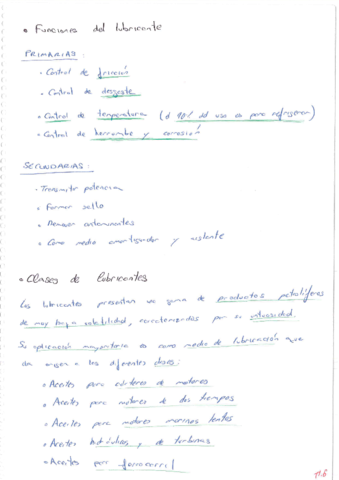 • Funciones del lubricante
PRIMARIAS:
• Control de fricción
• Control de desgaste
• Control de temperatura (el 90% del uso es para refrigerar)
• Control de herrumbe y corrosión
SECUNDARIAS:
• Transmitir potencia
• Formar sello
• Remover contaminantes
• Como medio amortiguador y aislante
• Clases de lubricantes
Los lubricantes presentan una gama de productos petrolíferos
de muy baja volatilidad, caracterizados por su viscosidad.
Su aplicación mayoritaria es como medio de lubricación que
da origen a las diferentes clases:
• Aceites para cárteres de motores
• Aceites para motores de dos tiempos
• Aceites para motores marinos lentos
• Aceites hidráulicos y de turbinas
• Aceites para ferrocarril